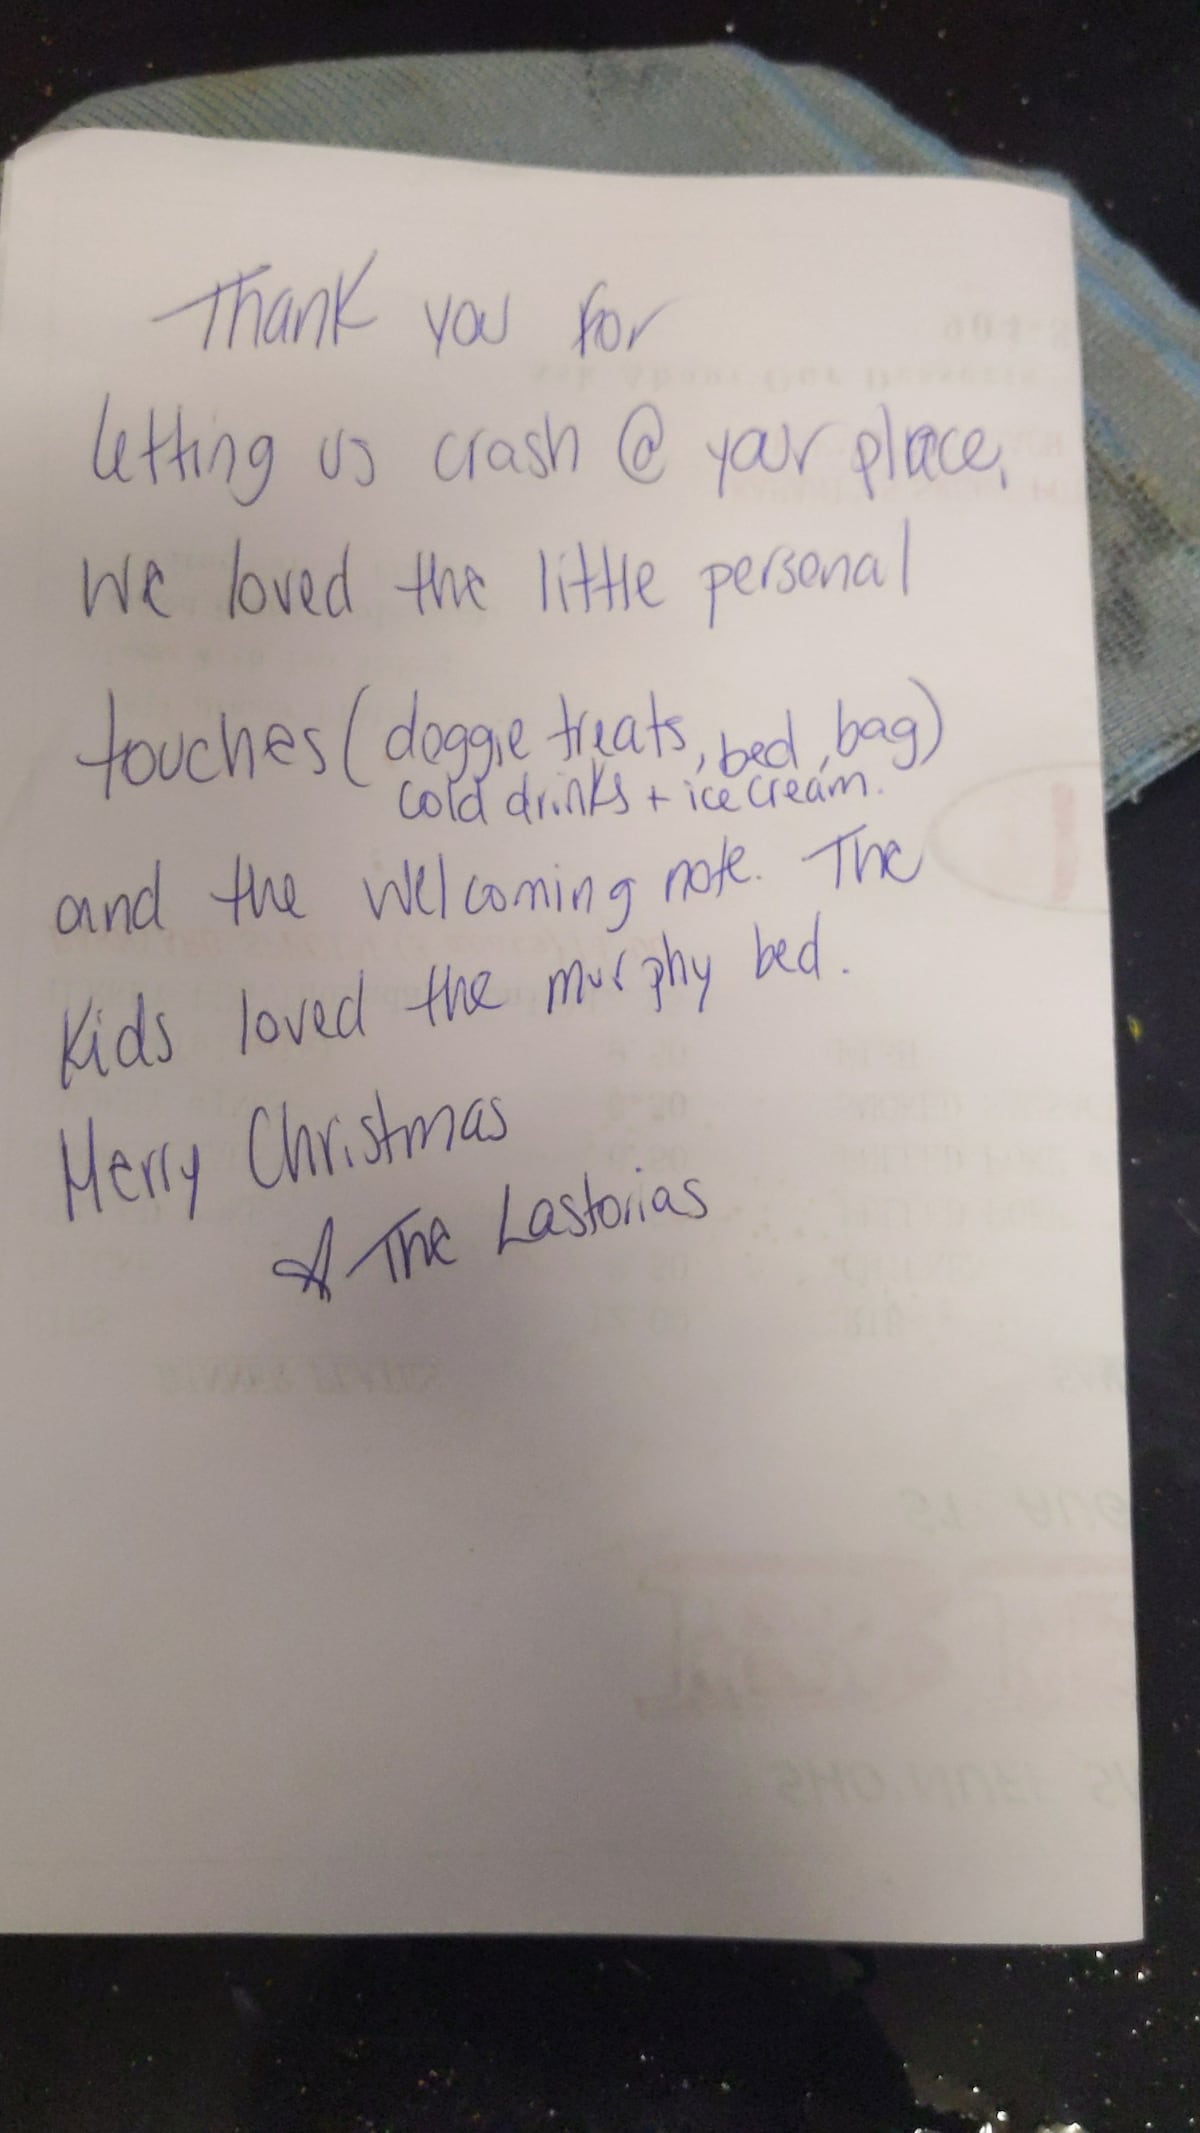 Thank you for
letting us crash @ your place.
We loved the little personal
touches (doggie treats, bed, bag)
cold drinks + ice cream.
and the welcoming note. The
kids loved the murphy bed.
Merry Christmas
The Lastorias